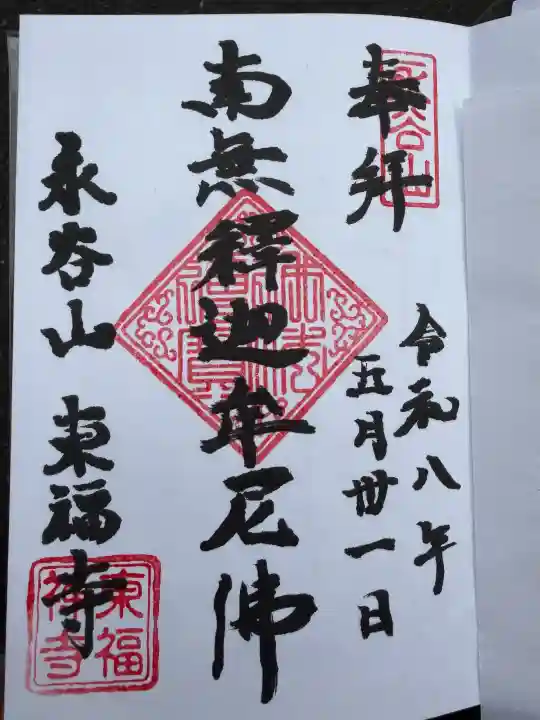 奉拝
永谷山
令和八年
五月卅一日
南無釋迦牟尼佛
佛法僧寶
永谷山 東福寺
東福禅寺